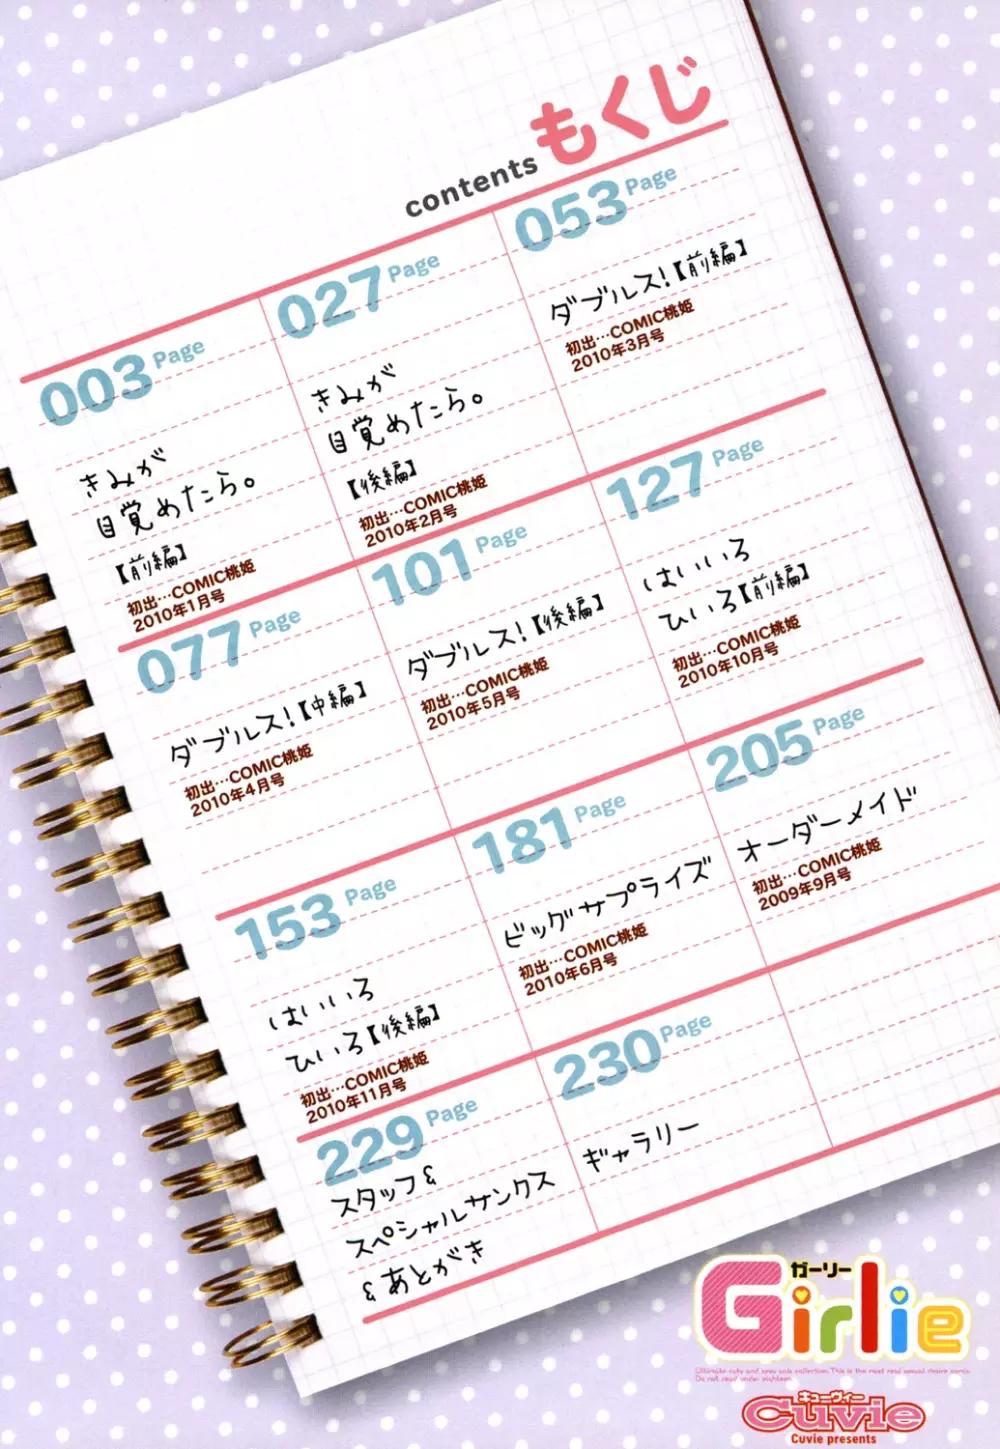 contents もくじ
003 Page
きみが
目覚めたら。
【前編】
初出…COMIC桃姫
2010年1月号
027 Page
きみが
目覚めたら。
【後編】
初出…COMIC桃姫
2010年2月号
053 Page
ダブルス!【前編】
初出…COMIC桃姫
2010年3月号
077 Page
ダブルス!【中編】
初出…COMIC桃姫
2010年4月号
101 Page
ダブルス!【後編】
初出…COMIC桃姫
2010年5月号
127 Page
はいいろ
ひいろ【前編】
初出…COMIC桃姫
2010年10月号
153 Page
はいいろ
ひいろ【後編】
初出…COMIC桃姫
2010年11月号
181 Page
ビッグサプライズ
初出…COMIC桃姫
2010年6月号
205 Page
オーダーメイド
初出…COMIC桃姫
2009年9月号
229 Page
スタッフ&
スペシャルサンクス
&あとがき
230 Page
ギャラリー
ガーリー
Girlie
Do not read under eighteen.
キューヴィー
Cuvie
Cuvie presents